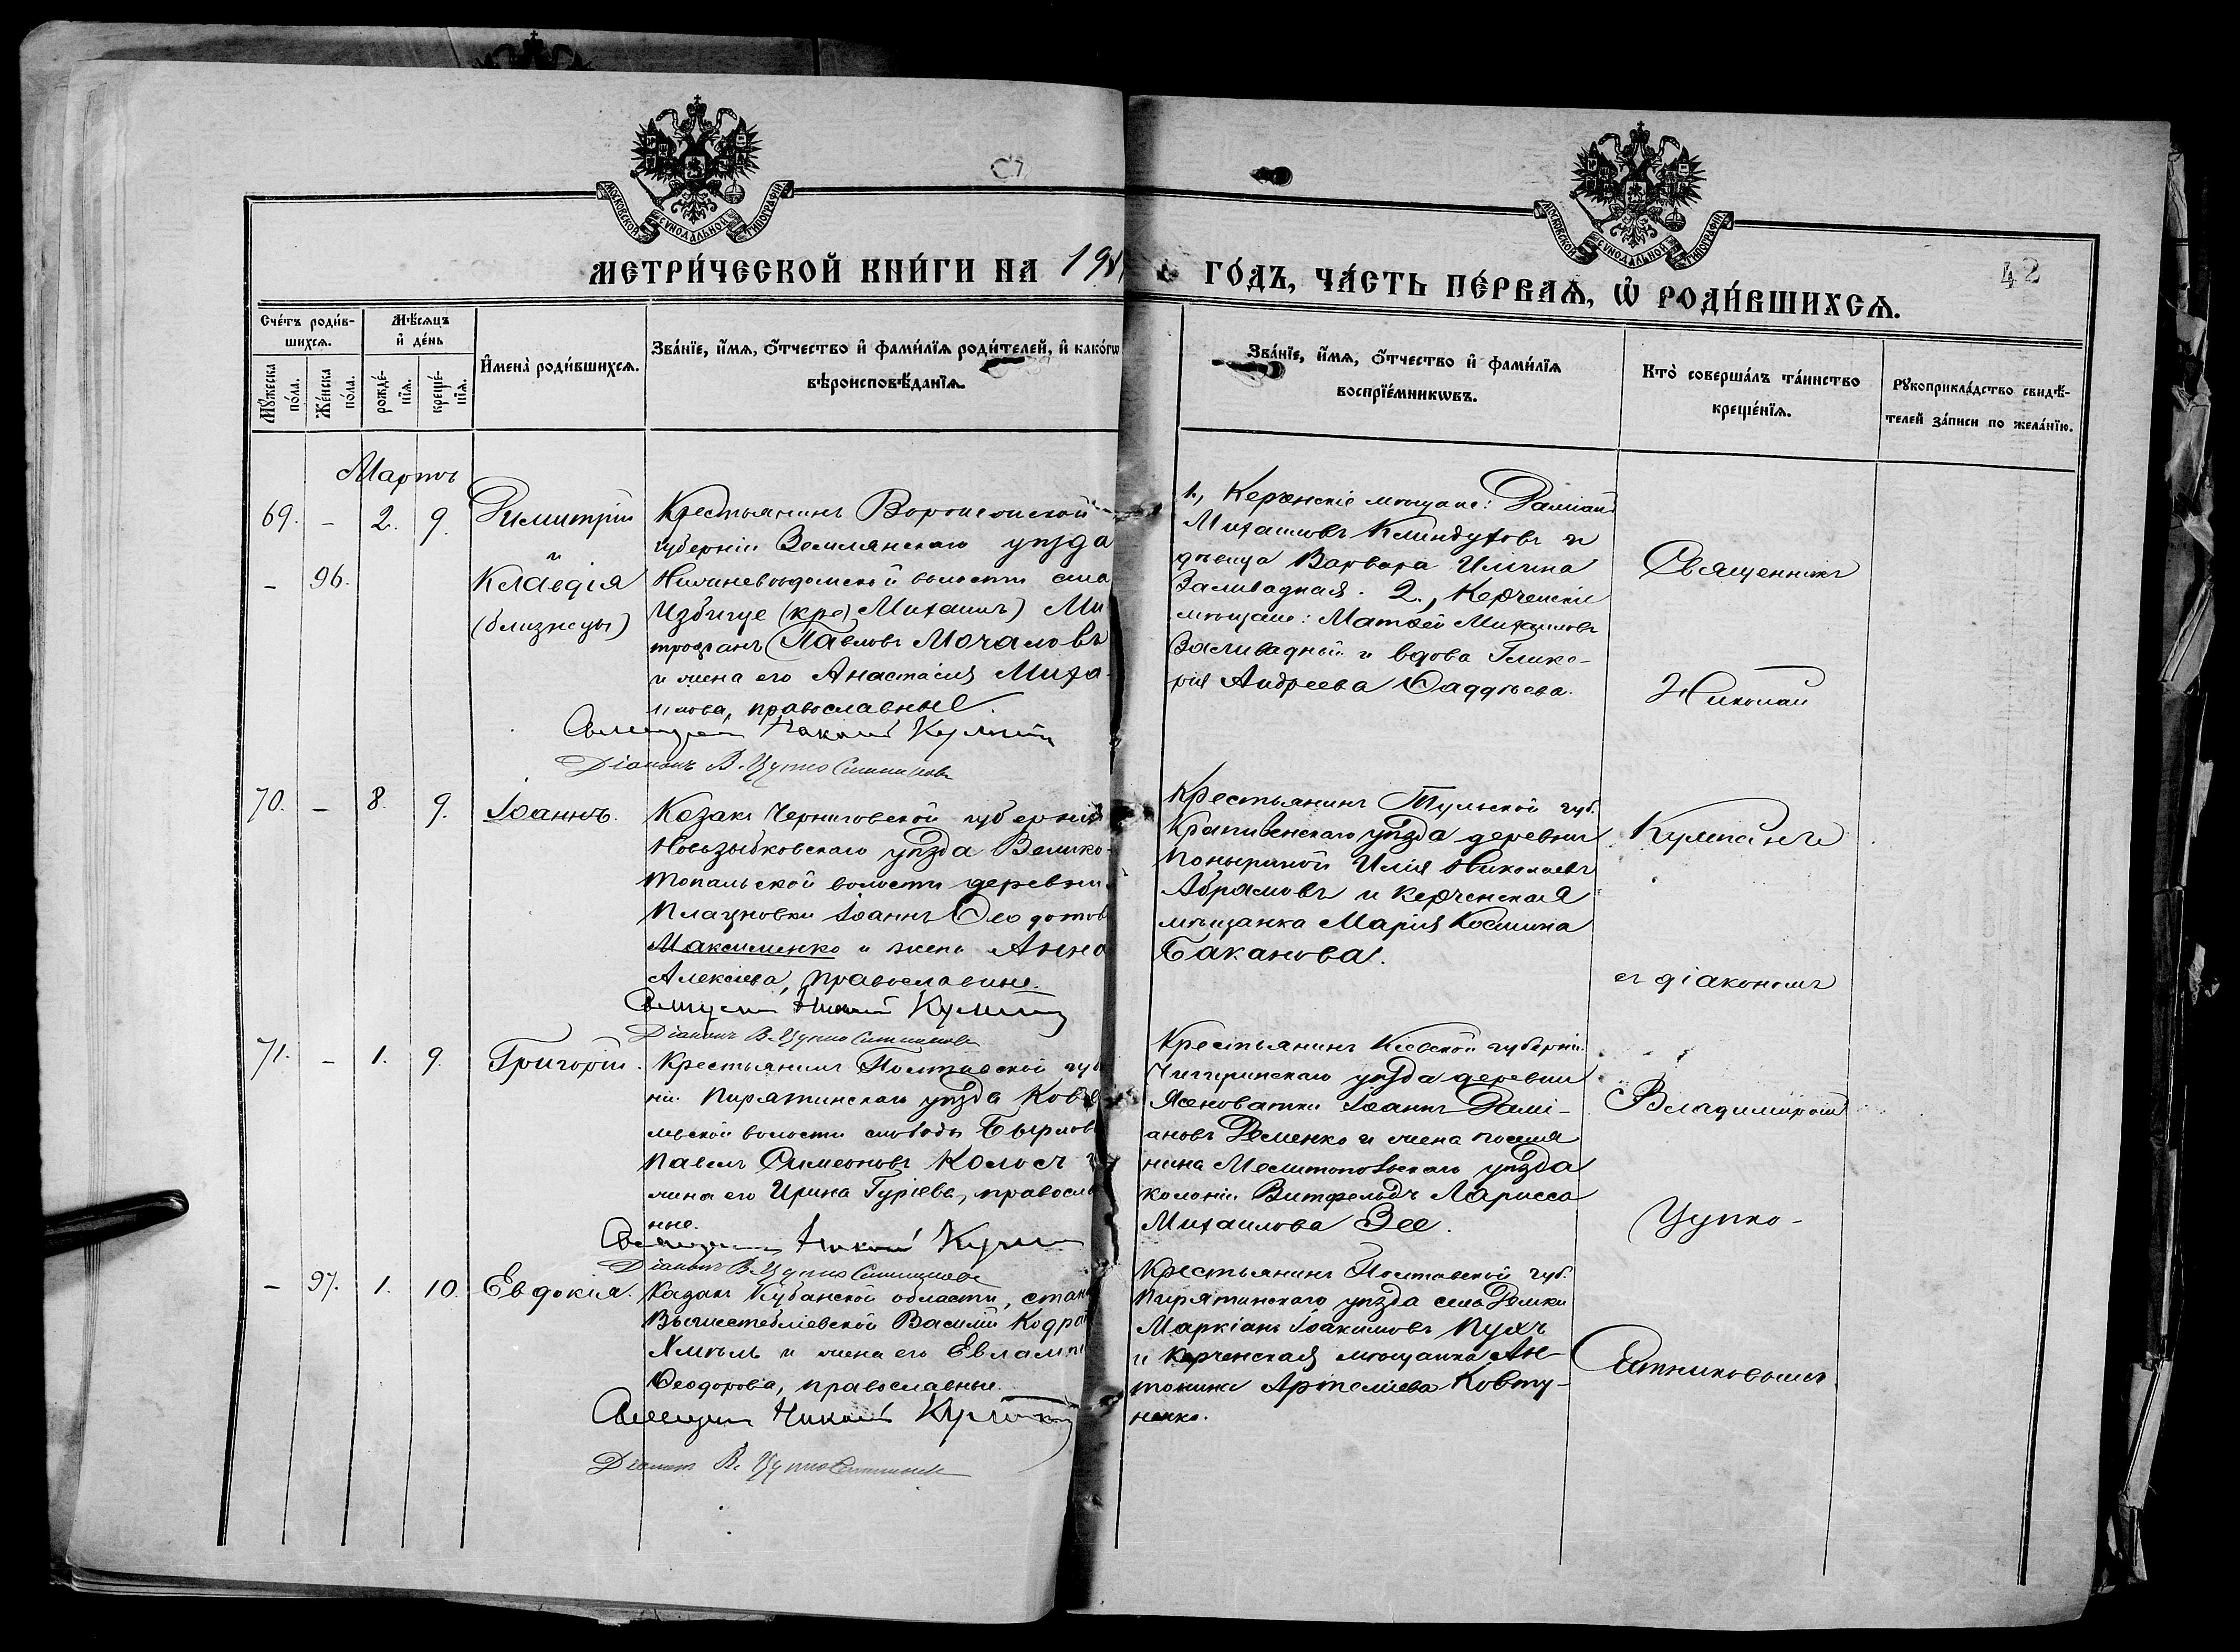 МОСКОВСКОЙ СѴНОДАЛЬНОЙ ТИПОГРАФІИ
МОСКОВСКОЙ СѴНОДАЛЬНОЙ ТИПОГРАФІИ
МЕТРИ́ЧЕСКОЙ КНИ́ГИ НА 19
ГО́ДЪ, ЧА́СТЬ ПЕ́РВАѦ, Ѡ҆ РОДИ́ВШИХСѦ.
42
Сче́тъ роди́в-
шихсѧ.
Мѣ́сѧцъ
и҆ де́нь
Мꙋ́жеска
по́ла.
Же́нска
по́ла.
рожде́-
нїѧ.
креще́-
нїѧ.
И҆мена̀ роди́вшихсѧ.
Зва́нїе, и҆́мѧ, ѻ҆́тчество и҆ фами́лїѧ роди́телей, и҆ како́гѡ
вѣроисповѣ́данїѧ.
Зва́нїе, и҆́мѧ, ѻ҆́тчество и҆ фами́лїѧ
воспрїе́мникѡвъ.
Кто̀ соверша́лъ та́инство
креще́нїѧ.
Рꙋкоприкла́дство свидѣ́-
телей за́писи по жела́нїю.
Мартъ
69. – 2. 9. Димитрій
и
– 96. Клавдія
(близнецы)
Крестьянинъ Воронежской
губерніи Землянскаго уѣзда
волости села
(кре) Михаилъ) Ми
трофанъ Павловъ Мочаловъ
и жена его Анастасія Миха
илова, православные.
Священникъ Николай
Діаконъ В. Цупко Ситниковъ
1, Керченскіе мѣщане: Даміанъ
Михаиловъ Климдуховъ и
дѣвица Варвара Ильина
Заливадная. 2., Керченскіе
мѣщане: Матѳей Михаиловъ
Заливадный и вдова Глике-
рія Андреева Фаддѣева.
Священникъ
Николай
70. – 8. 9. Іоаннъ.
Козакъ Черниговской губерніи
Новозыбковскаго уѣзда Велико-
топальской волости деревни
Іоаннъ Ѳеодотовъ
Максименко и жена Анна
Алексіева, православные.
Священникъ Николай
Діаконъ В. Цупко Ситниковъ
Крестьянинъ Тульской губ.
Крапивенскаго уѣзда деревни
Илія Николаевъ
Абрамовъ и керченская
мѣщанка Марія Космина
Баканова.
съ діакономъ
71. – 1. 9. Григорій.
Крестьянинъ Полтавской губ
ніи Пирятинскаго уѣзда
волости слободы
Павелъ Симеоновъ Колосъ и
жена его Ирина Гуріева, правосла
ные.
Священникъ Николай
Діаконъ В. Цупко Ситниковъ
Крестьянинъ Кіевской губерніи
Чигиринскаго уѣзда деревни
Ясеноватки Іоаннъ Дамі-
ановъ Деменко и жена поселя
нина Мелитопольскаго уѣзда
колоніи Витфельдъ Ларисса
Михаилова Зее.
Владиміромъ
Цупко-
– 97. 1. 10. Евдокія.
Казакъ Кубанской области, стан
Вышестебліевской Василій Кодра
Хмѣль и жена его Евлампі
Ѳеодорова, православные.
Священникъ Николай
Діаконъ В. Цупко Ситниковъ
Крестьянинъ Полтавской губ.
Пирятинскаго уѣзда села Демки
Маркіанъ Іоакимовъ Пухъ
и керченская мѣщанка Ан-
тонина Артеміева Ковту-
ненко.
Ситниковымъ.